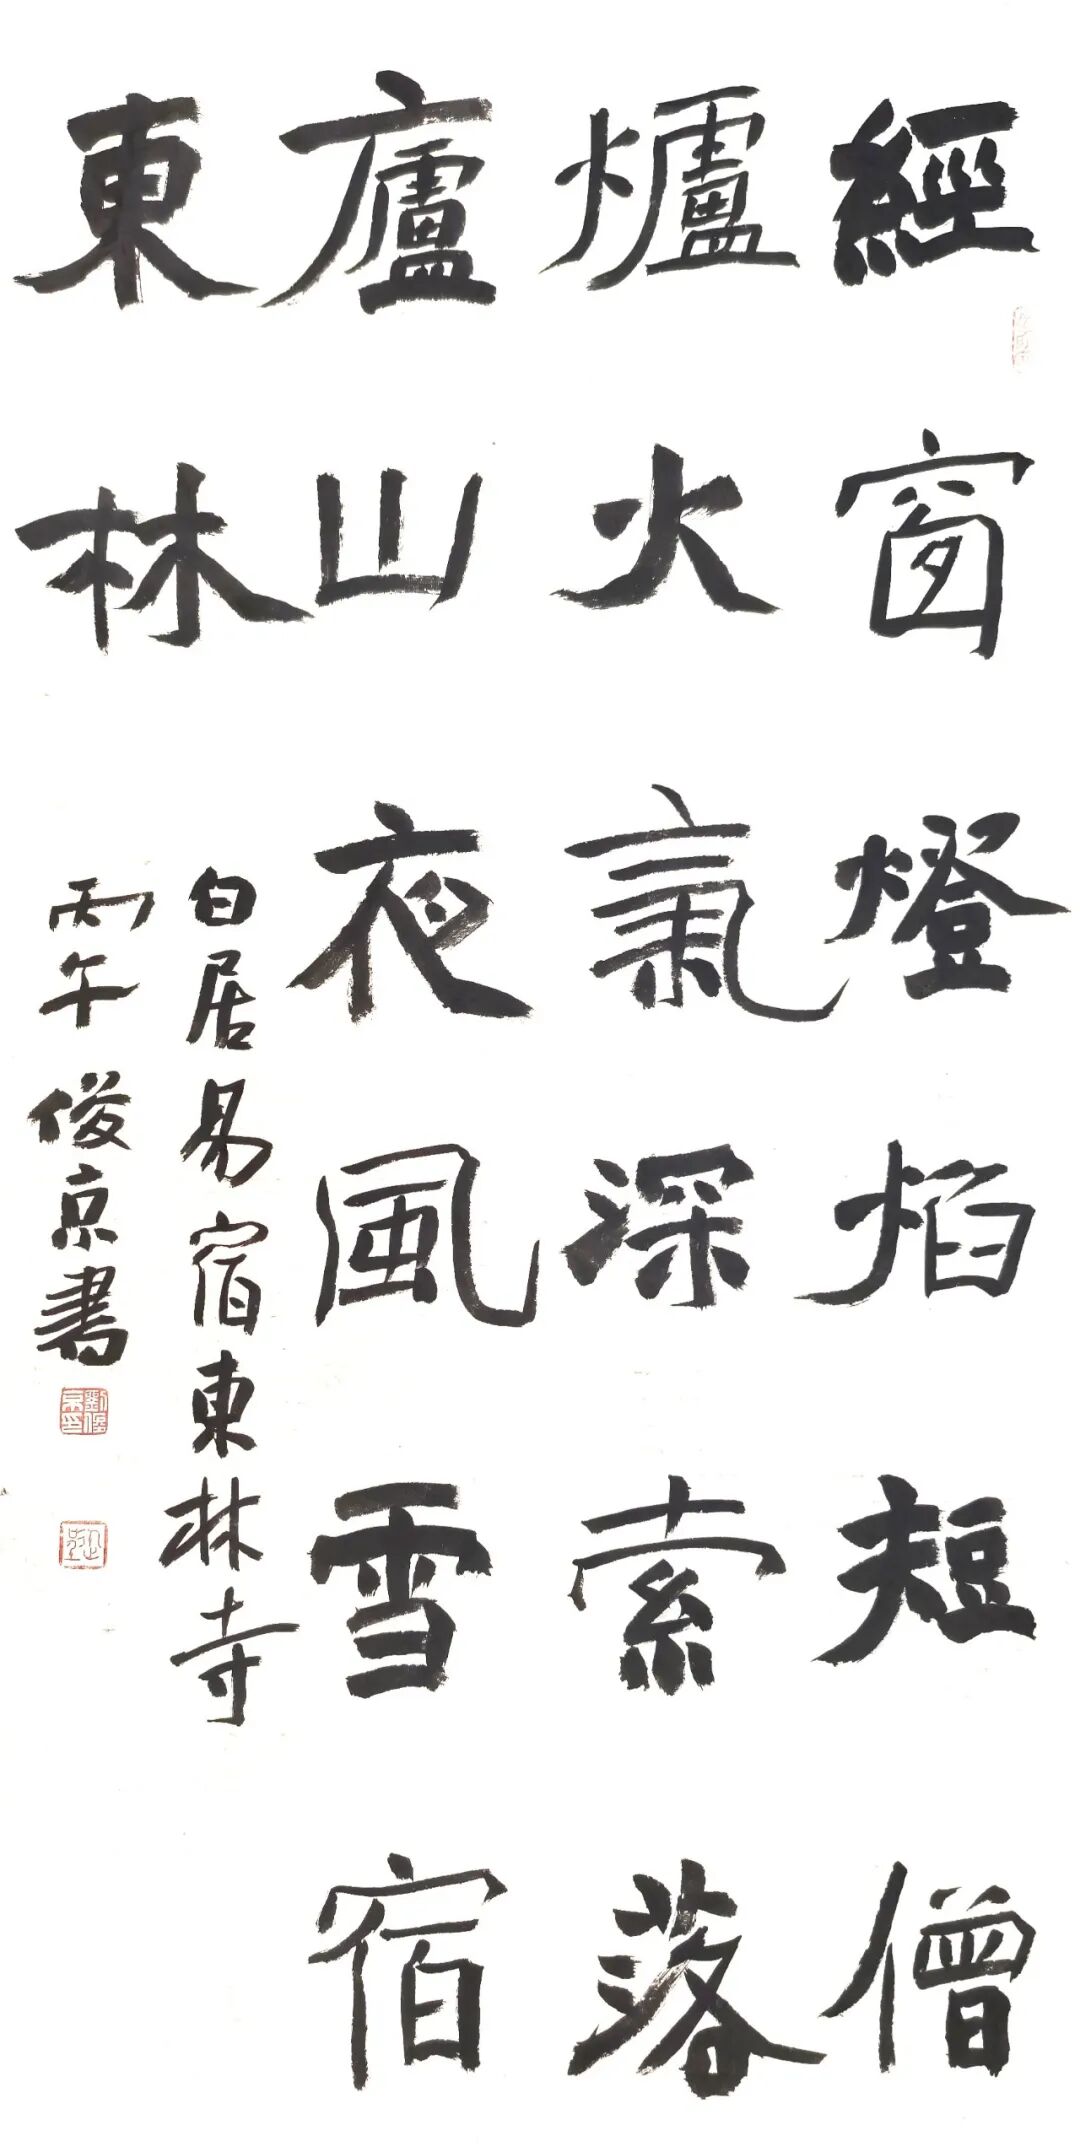 經窗燈焰短僧
爐火氣深索落
廬山夜風雪宿
東林
白居易宿東林寺
丙午俊京書